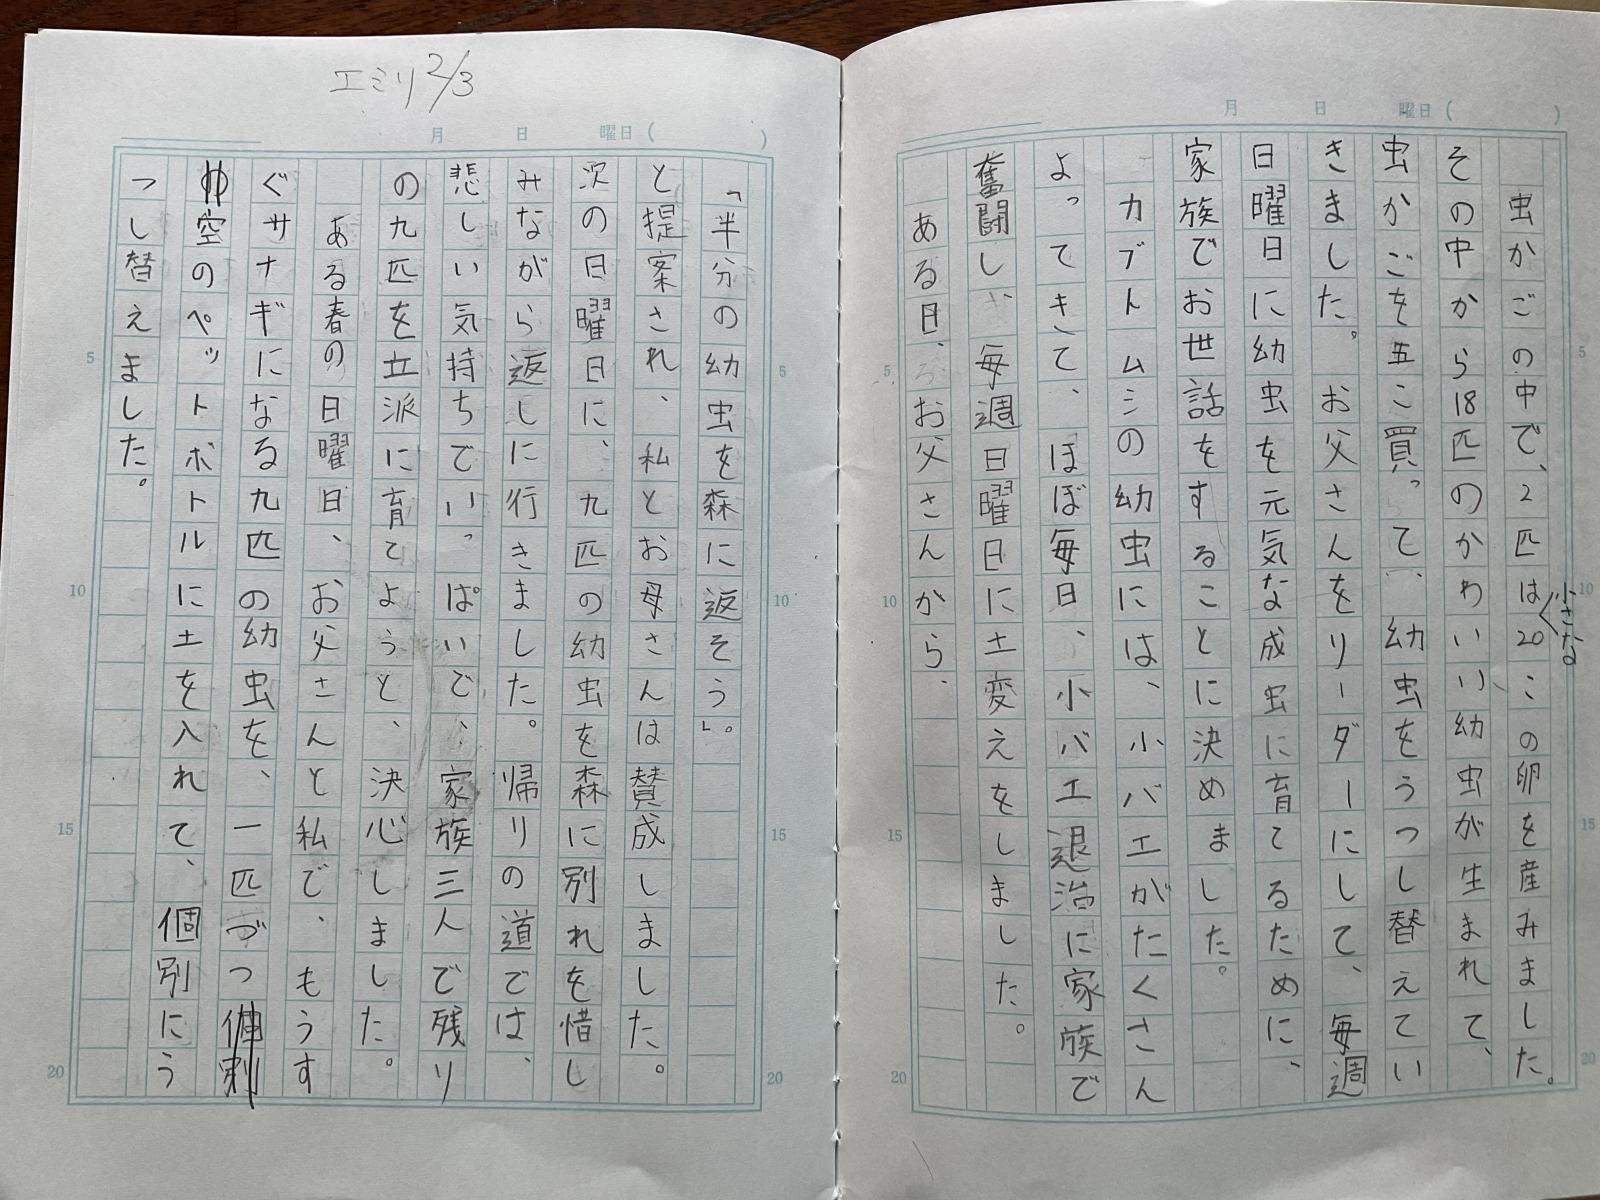 月 日 曜日( )
虫かごの中で、2匹は小さな20この卵を産みました。
その中から18匹のかわいい幼虫が生まれて、
虫かごを五こ買って、幼虫をうつし替えてい
きました。お父さんをリーダーにして、毎週
日曜日に幼虫を元気な成虫に育てるために、
家族でお世話をすることに決めました。
カブトムシの幼虫には、小バエがたくさん
よってきて、ほぼ毎日、小バエ退治に家族で
奮闘し、毎週日曜日に土変えをしました。
ある日、お父さんから、
5
10
15
20
5
10
15
20
エミリ 2/3
月 日 曜日( )
「半分の幼虫を森に返そう」。
と提案され、私とお母さんは賛成しました。
次の日曜日に、九匹の幼虫を森に別れを惜し
みながら返しに行きました。帰りの道では、
悲しい気持ちでいっぱいで、家族三人で残り
の九匹を立派に育てようと、決心しました。
ある春の日曜日、お父さんと私で、もうす
ぐサナギになる九匹の幼虫を、一匹づつ
空のペットボトルに土を入れて、個別にう
つし替えました。
5
10
15
20
5
10
15
20